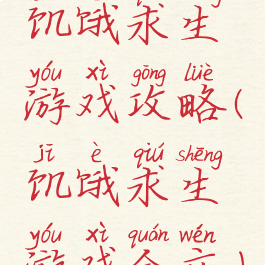 饥饿求生
yóu xì gōng lüè
游戏攻略(
jī è qiú shēng
饥饿求生
yóu xì quán wén
游戏全文)